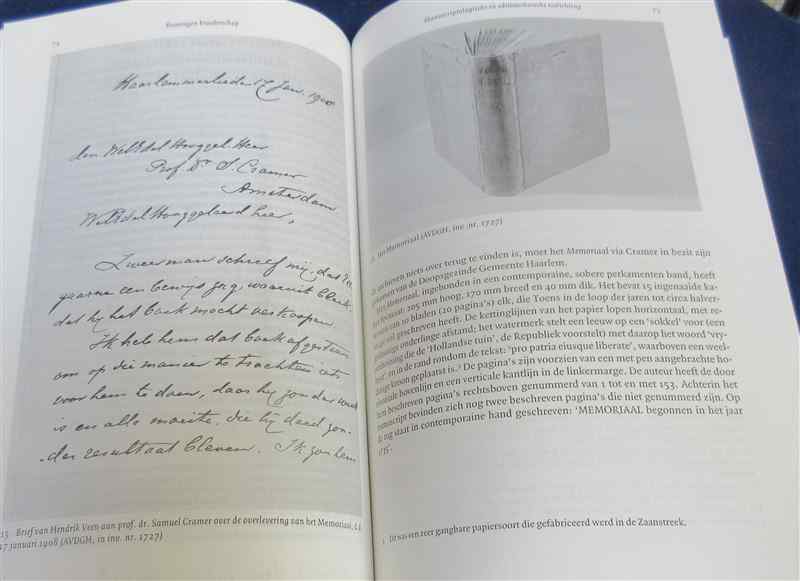 74
Bewogen Broederschap
Haarlemmerliede 17 Jan. 1908
den WelEdel Hooggel. Heer
Prof. Dr S. Cramer
Amsterdam
WelEdel Hooggeleerd heer,
Zweerman schreef mij, dat U
gaarne een bewijs
dat hij het boek mocht verkoopen.
Ik heb hem dat boek afgestaan
om op die manier te trachten iets
voor hem te doen, daar hij zonder werk
is en alle moeite, die hij deed zon-
der resultaat bleven. Ik gon hem
15 Brief van Hendrik Veen aan prof. dr. Samuel Cramer over de overlevering van het Memoriaal, d.d.
17 januari 1908 (AVDGH, in inv. nr. 1727)
Manuscriptologische en editietechnische toelichting
75
Het Memoriaal (AVDGH, inv. nr. 1727)
archieven niets over terug te vinden is, moet het Memoriaal via Cramer in bezit zijn
gekomen van de Doopsgezinde Gemeente Haarlem.
Het Memoriaal, ingebonden in een contemporaine, sobere perkamenten band, heeft
als formaat: 205 mm hoog, 170 mm breed en 40 mm dik. Het bevat 15 ingenaaide ka-
ternen van 10 bladen (20 pagina's) elk, die Toens in de loop der jaren tot circa halver-
wege vol geschreven heeft. De kettinglijnen van het papier lopen horizontaal, met re-
gelmatige onderlinge afstand; het watermerk stelt een leeuw op een 'sokkel' voor (een
omheining die de 'Hollandse tuin', de Republiek voorstelt) met daarop het woord 'vry-
heid', en in de rand rondom de tekst: 'pro patria eiusque liberate', waarboven een weel-
derige kroon geplaatst is.³ De pagina's zijn voorzien van een met pen aangebrachte ho-
rizontale bovenlijn en een verticale kantlijn in de linkermarge. De auteur heeft de door
hem beschreven pagina's rechtsboven genummerd van 1 tot en met 153. Achterin het
manuscript bevinden zich nog twee beschreven pagina's die niet genummerd zijn. Op
de rug staat in contemporaine hand geschreven: 'MEMORIAAL begonnen in het jaar
Dit was een zeer gangbare papiersoort die gefabriceerd werd in de Zaanstreek.